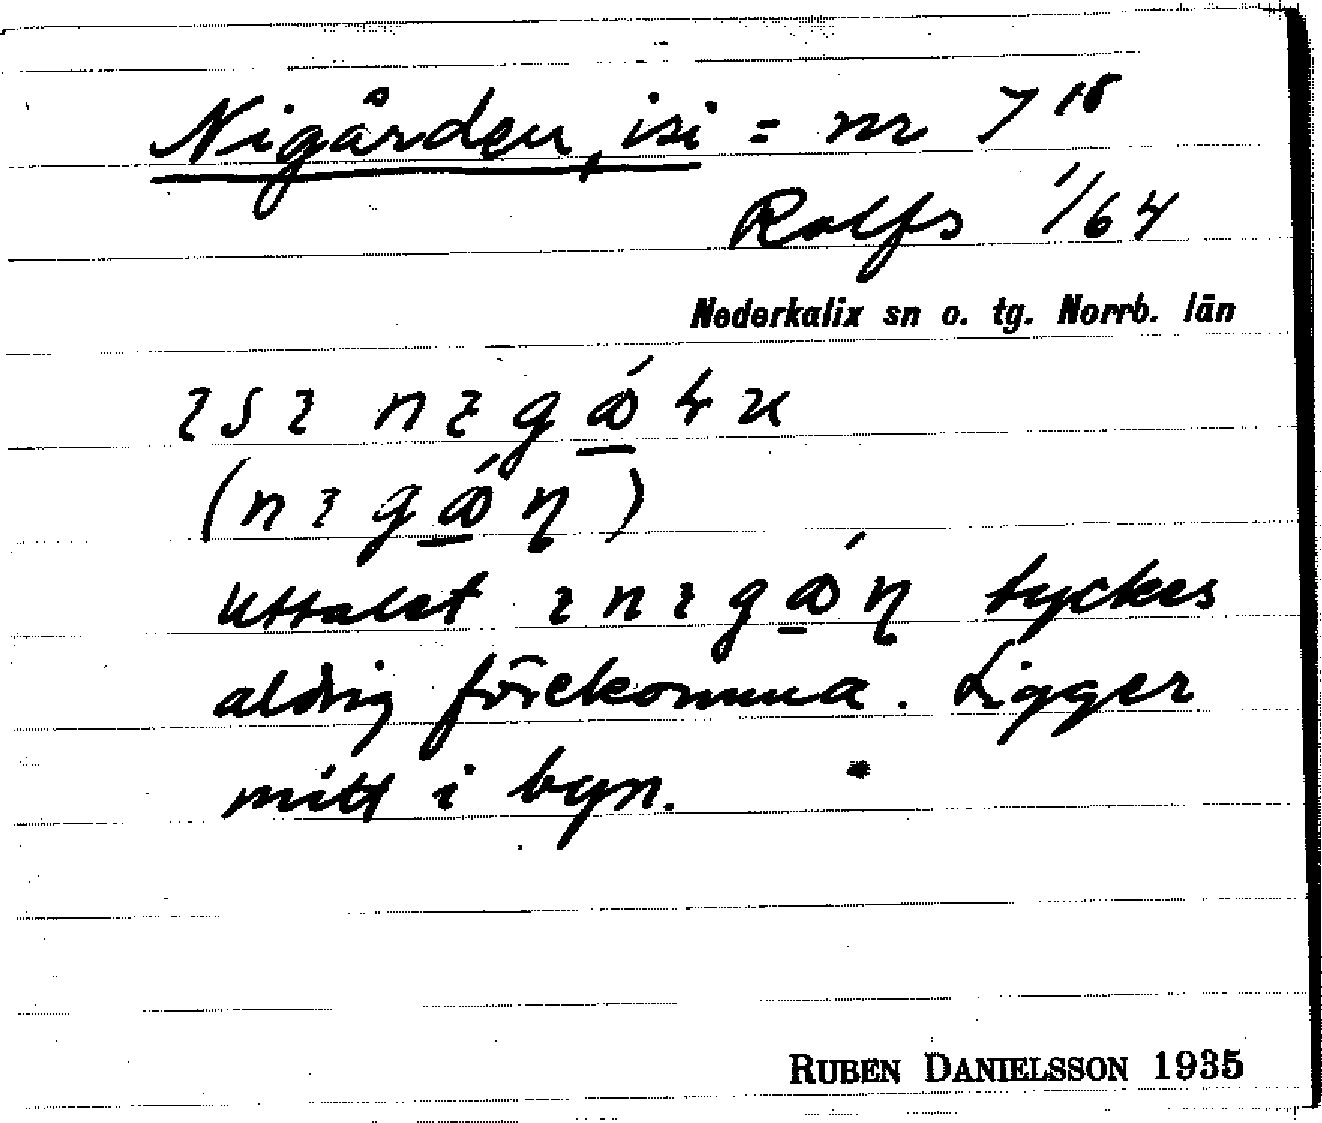 Nigården, isi = nr 7¹⁸
Rolfs 1/64
Nederkalix sn o. tg. Norrb. län
Uttalet tyckes
aldrig förekomma. Ligger
mitt i byn.
RUBEN DANIELSSON 1935